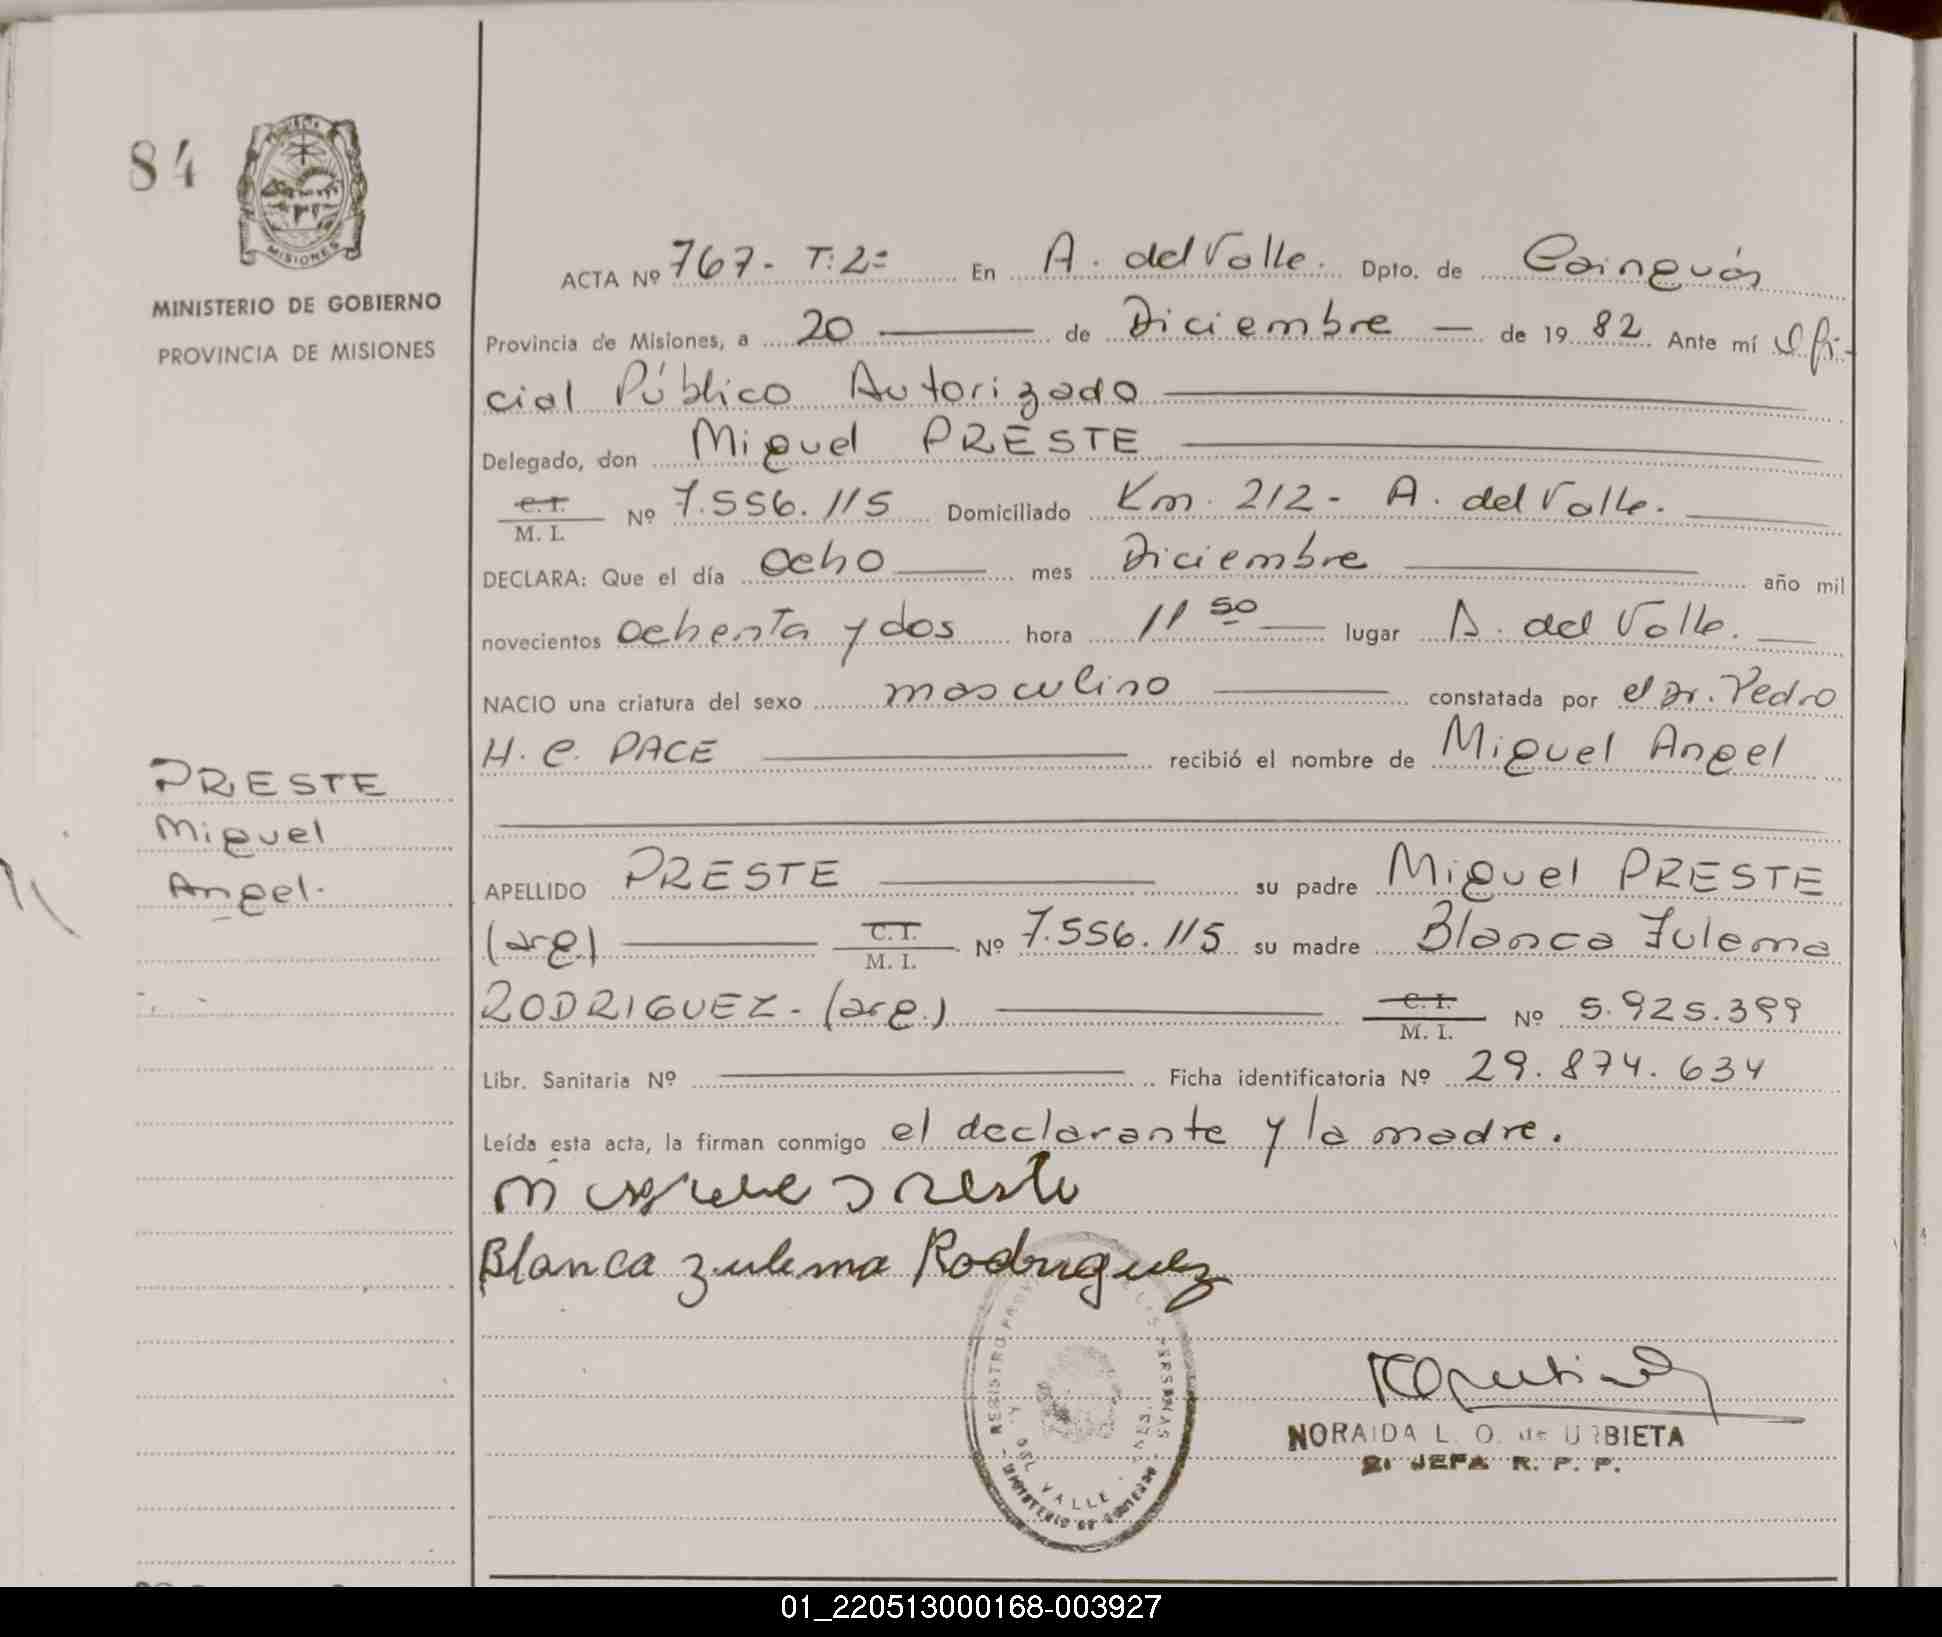 84
MISIONES
MINISTERIO DE GOBIERNO
PROVINCIA DE MISIONES
PRESTE
Miguel
Angel.
ACTA Nº 767- T:2º En A. del Valle. Dpto. de Cainguás
Provincia de Misiones, a 20 de Diciembre de 19 82 Ante mí Ofi-
cial Público Autorizado
Delegado, don Miguel PRESTE
C.I.
M. I. Nº 7.556.115 Domiciliado Km. 212- A. del Valle.
DECLARA: Que el día Ocho mes Diciembre año mil
novecientos Ochenta y dos hora 11 50 lugar A. del Valle.
NACIO una criatura del sexo masculino constatada por el Dr. Pedro
H. C. PACE recibió el nombre de Miguel Angel
APELLIDO PRESTE su padre Miguel PRESTE
(arg.) C.I.
M. I. Nº 7.556.115 su madre Blanca Zulema
RODRIGUEZ- (arg.) C.I.
M. I. Nº 5.925.399
Libr. Sanitaria Nº Ficha identificatoria Nº 29.874.634
Leída esta acta, la firman conmigo el declarante y la madre.
Blanca Zulema Rodriguez
NORAIDA L. O. de URBIETA
JEFA R. P. P.
REGISTRO PERSONAS
A. DEL VALLE
MINISTERIO DE GOBIERNO
01_220513000168-003927